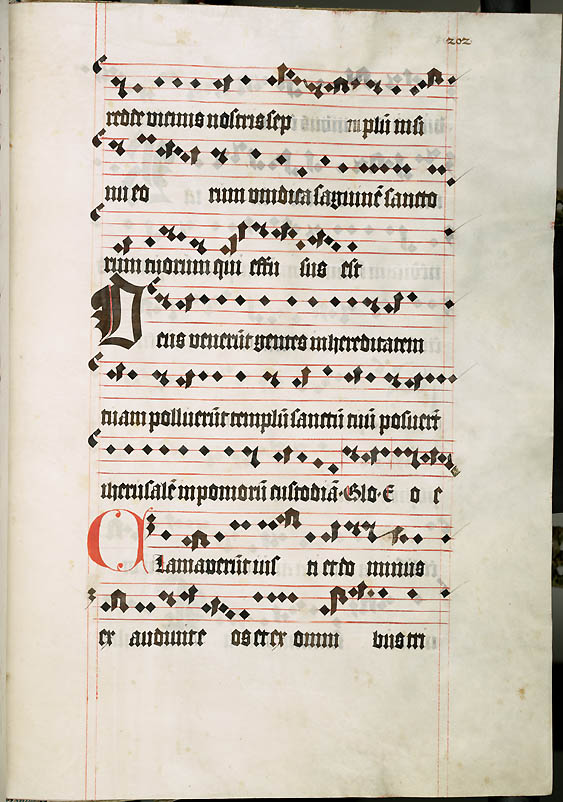 202
redde vicinis nostris sep m plū in si
nu eo rum vindica sāguinē sancto
rum tuorum qui effu sus est
Deus venerūt gentes in hereditatem
tuam polluerūt templū sanctū tuū posuerūt
iherusalē in pomorū custodiā Glo E o e
Clamaverūt ius ti et do minus
ex audivit e os et ex omni bus tri